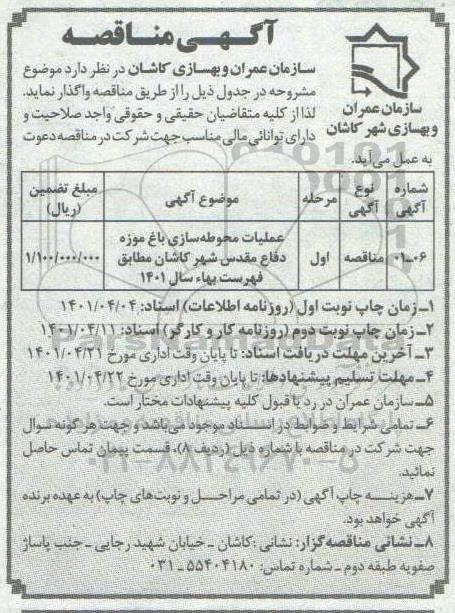 آگهی مناقصه
سازمان عمران
و بهسازی شهر کاشان
سازمان عمران و بهسازی کاشان در نظر دارد موضوع
مشروحه در جدول ذیل را از طریق مناقصه واگذار نماید.
لذا از کلیه متقاضیان حقیقی و حقوقی واجد صلاحیت و
دارای توانائی مالی مناسب جهت شرکت در مناقصه دعوت
به عمل می‌آید.
شماره آگهی | نوع آگهی | مرحله | موضوع آگهی | مبلغ تضمین (ریال)
۰۱-۰۶ | مناقصه | اول | عملیات محوطه‌سازی باغ موزه دفاع مقدس شهر کاشان مطابق فهرست بهاء سال ۱۴۰۱ | ۱/۱۰۰/۰۰۰/۰۰۰
۱ـ زمان چاپ نوبت اول (روزنامه اطلاعات) اسناد: ۱۴۰۱/۰۴/۰۴
۲ـ زمان چاپ نوبت دوم (روزنامه کار و کارگر) اسناد: ۱۴۰۱/۰۴/۱۱
۳ـ آخرین مهلت دریافت اسناد: تا پایان وقت اداری مورخ ۱۴۰۱/۰۴/۲۱
۴ـ مهلت تسلیم پیشنهادها: تا پایان وقت اداری مورخ ۱۴۰۱/۰۴/۲۲
۵ـ سازمان عمران در رد یا قبول کلیه پیشنهادات مختار است.
۶ـ تمامی شرایط و ضوابط در اسناد موجود می‌باشد و جهت هر گونه سوال
جهت شرکت در مناقصه با شماره ذیل (ردیف ۸)، قسمت پیمان تماس حاصل
نمائید.
۷ـ هزینه چاپ آگهی (در تمامی مراحل و نوبت‌های چاپ) به عهده برنده
آگهی خواهد بود.
۸ـ نشانی مناقصه‌گزار: نشانی: کاشان ـ خیابان شهید رجایی ـ جنب پاساژ
صفویه طبقه دوم ـ شماره تماس: ۵۵۴۰۴۱۸۰ ـ ۰۳۱
ParsNamadData
۰۲۱-۸۸۳۴۹۶۷۰-۵